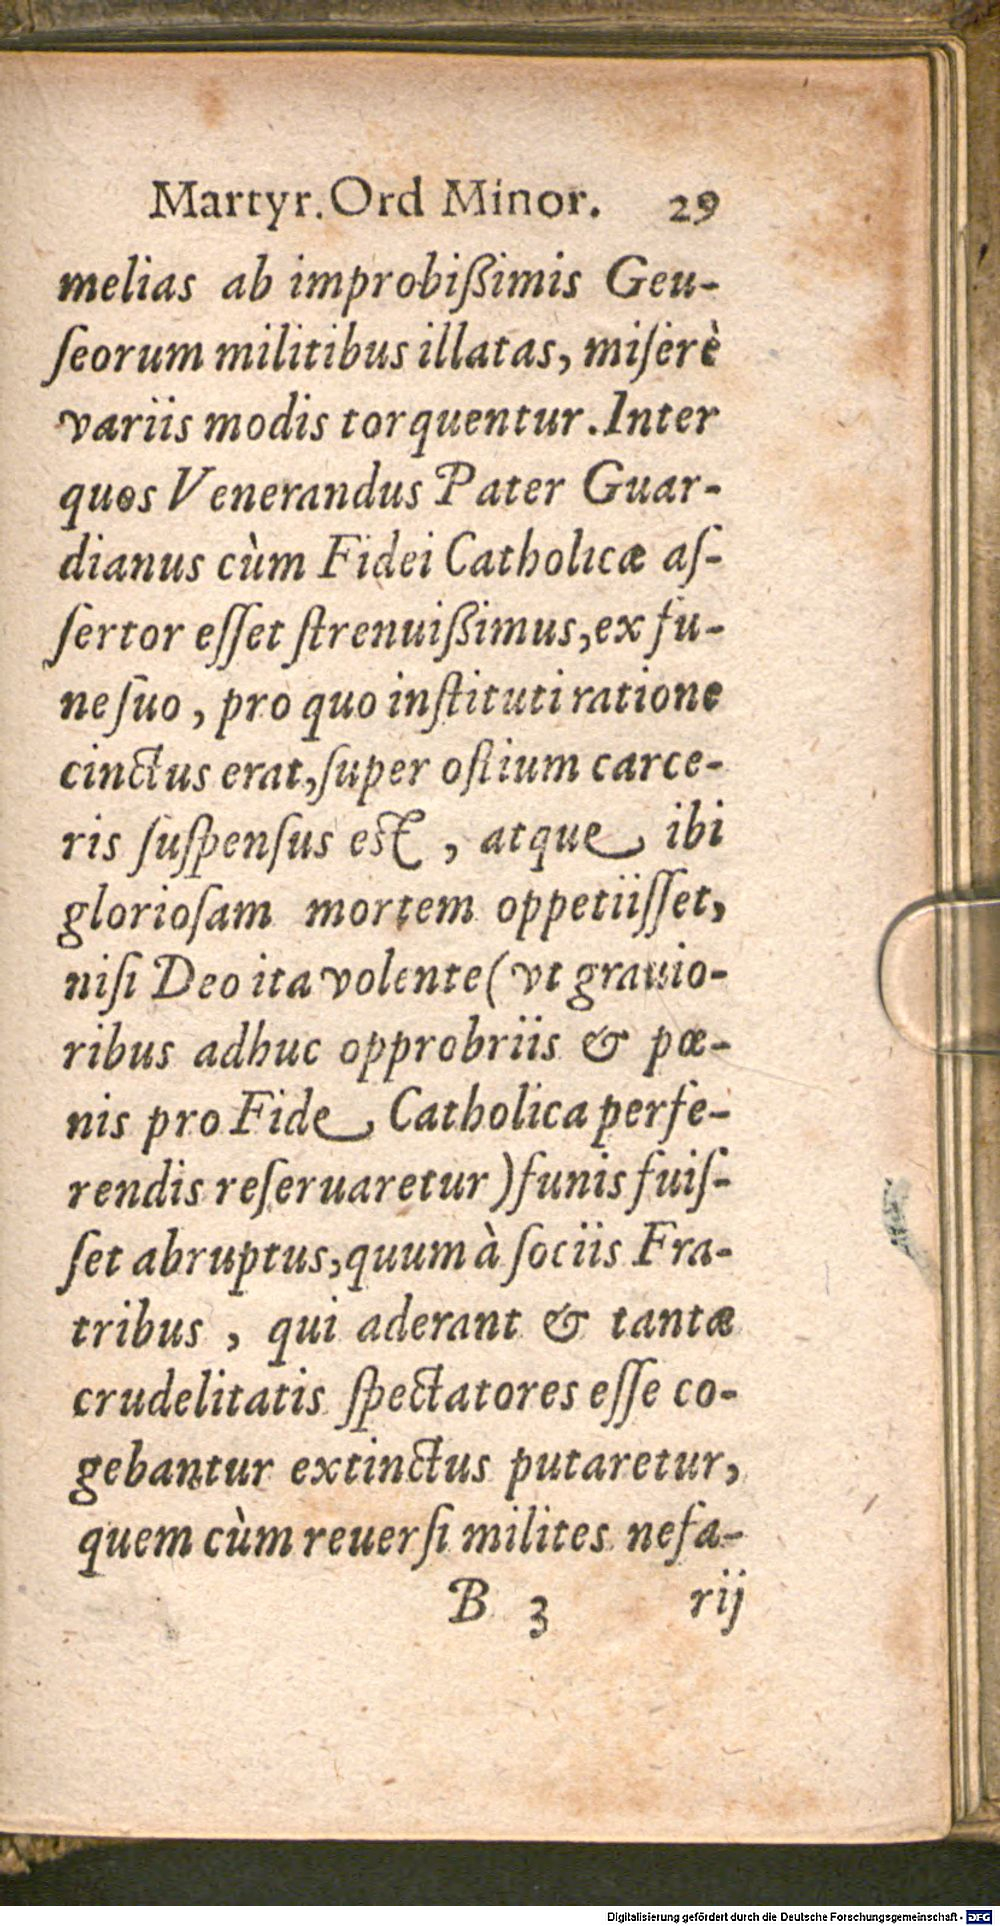 Martyr. Ord Minor. 29
melias ab improbißimis Geu-
ſeorum militibus illatas, miſerè
variis modis torquentur. Inter
quos Venerandus Pater Guar-
dianus cùm Fidei Catholicæ aſ-
ſertor eſſet ſtrenuißimus, ex fu-
ne ſuo, pro quo inſtituti ratione
cinctus erat, ſuper oſtium carce-
ris ſuſpenſus eſt, atque ibi
glorioſam mortem oppetiiſſet,
niſi Deo ita volente (vt grauio-
ribus adhuc opprobriis & pœ-
nis pro Fide Catholica perfe-
rendis reſeruaretur) funis fuiſ-
ſet abruptus, quum à ſociis Fra-
tribus, qui aderant & tantæ
crudelitatis ſpectatores eſſe co-
gebantur extinctus putaretur,
quem cùm reuerſi milites nefa-
B 3 rij
Digitalisierung gefördert durch die Deutsche Forschungsgemeinschaft - DFG